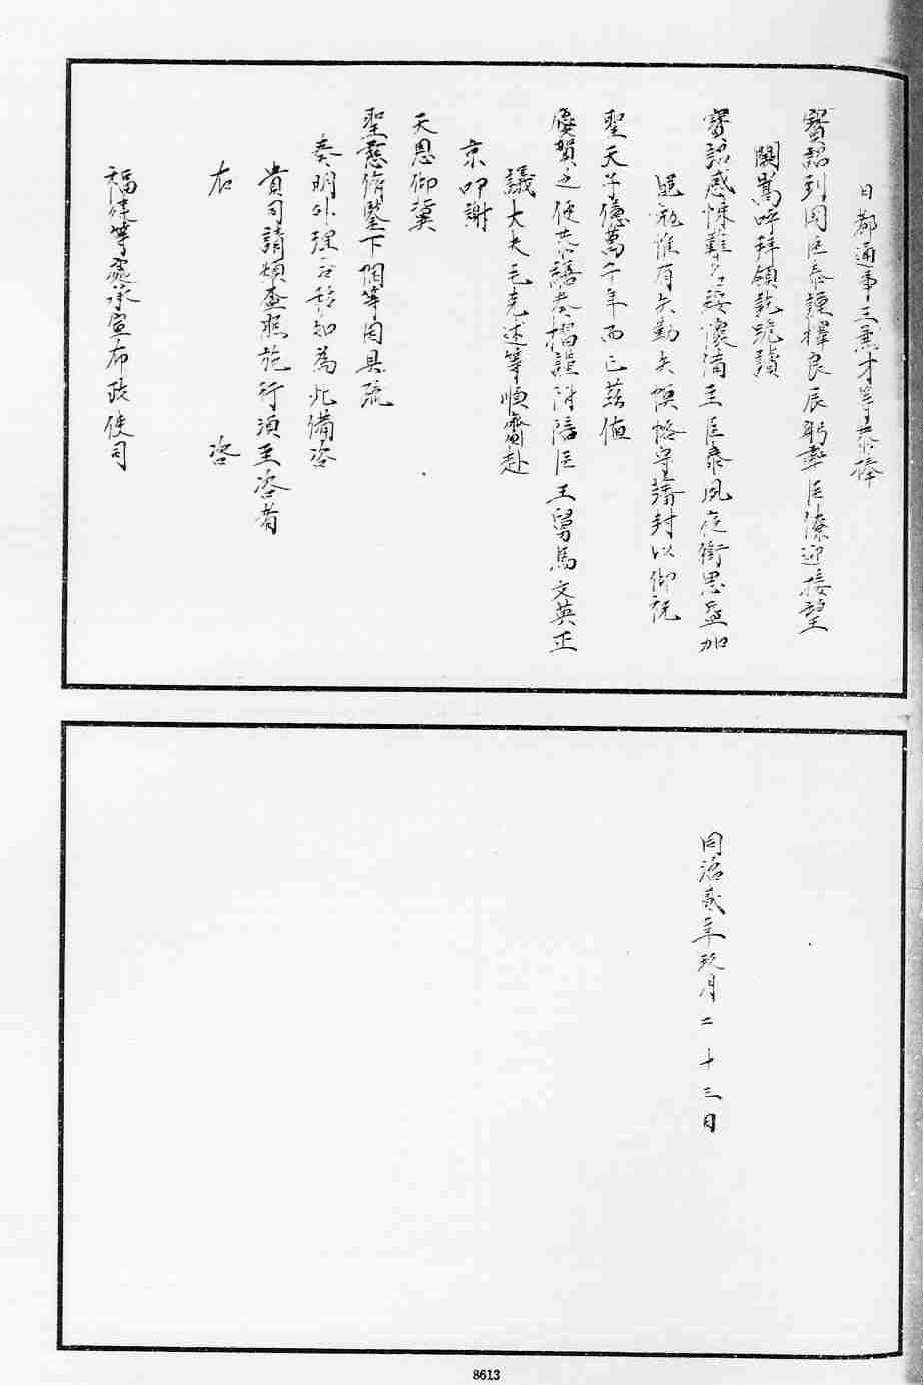 日都通事王兼才等恭捧
寶詔到國臣泰謹擇良辰躬率臣僚迎接望
闕嵩呼拜領訖跪讀
寶詔感悚難名竊
臣泰夙夜銜思益加
惟有矢勤矢慎恪守藩封以仰祝
聖天子億萬千年而已茲值
慶賀之便恭繕奏摺謹附陪臣王舅馬文英正
議大夫毛克述等順齎赴
京叩謝
天恩仰冀
聖慈俯鑒下悃等因具疏
奏明外理合移知為此備咨
貴司請煩查照施行須至咨者
右 咨
福建等處承宣布政使司
同治貳年玖月二十三日
8613